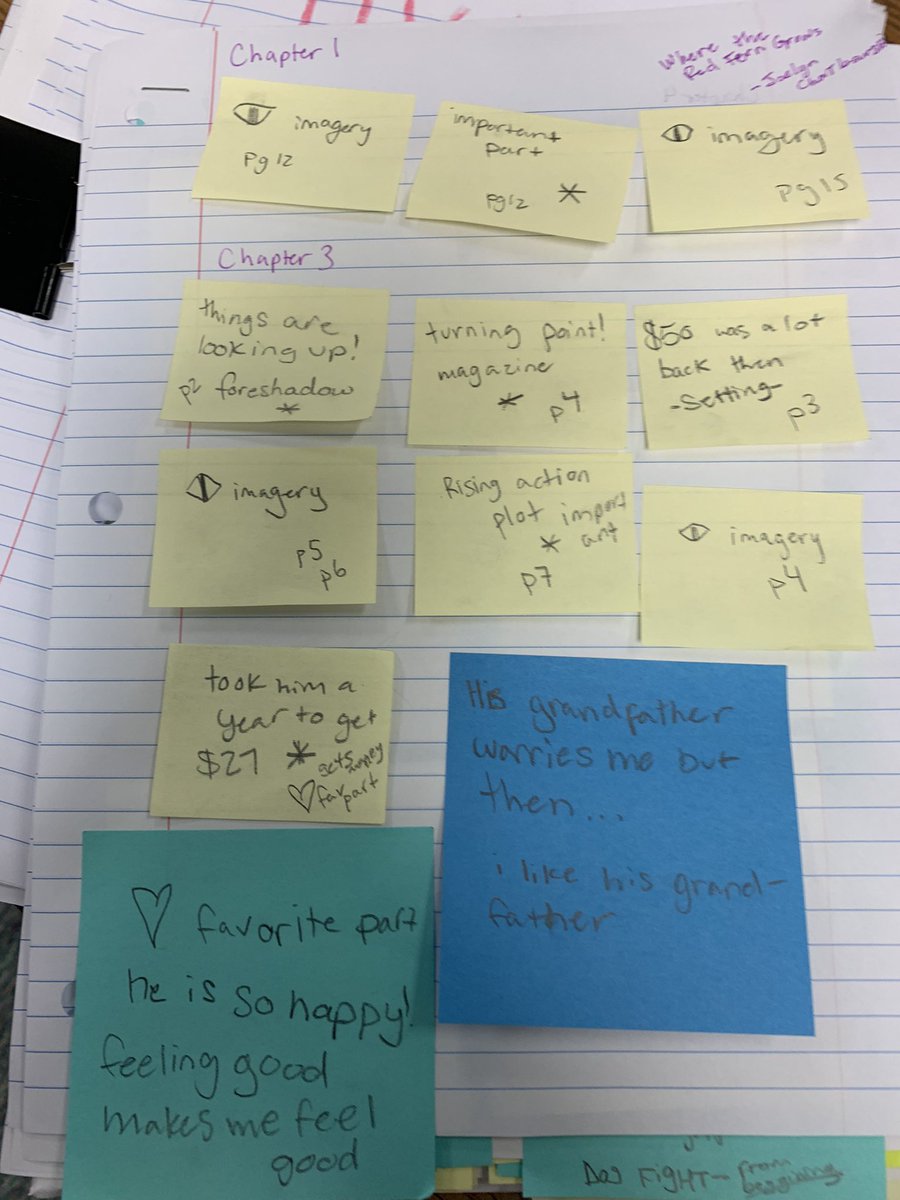 Chapter 1
Where the
Red Fern Grows
imagery
pg 12
important
part
pg12 *
imagery
pg 15
Chapter 3
things are
looking up!
p2 foreshadow
*
turning point!
magazine
* p4
$50 was a lot
back then
-Setting-
p3
imagery
p5
p6
Rising action
plot import
* ant
p7
imagery
p4
took him a
year to get
$27 * gets money
♡ fav part
His grandfather
worries me but
then...
i like his grand-
father
♡ favorite part
he is so happy!
feeling good
makes me feel
good
FIGHT- from
beginning